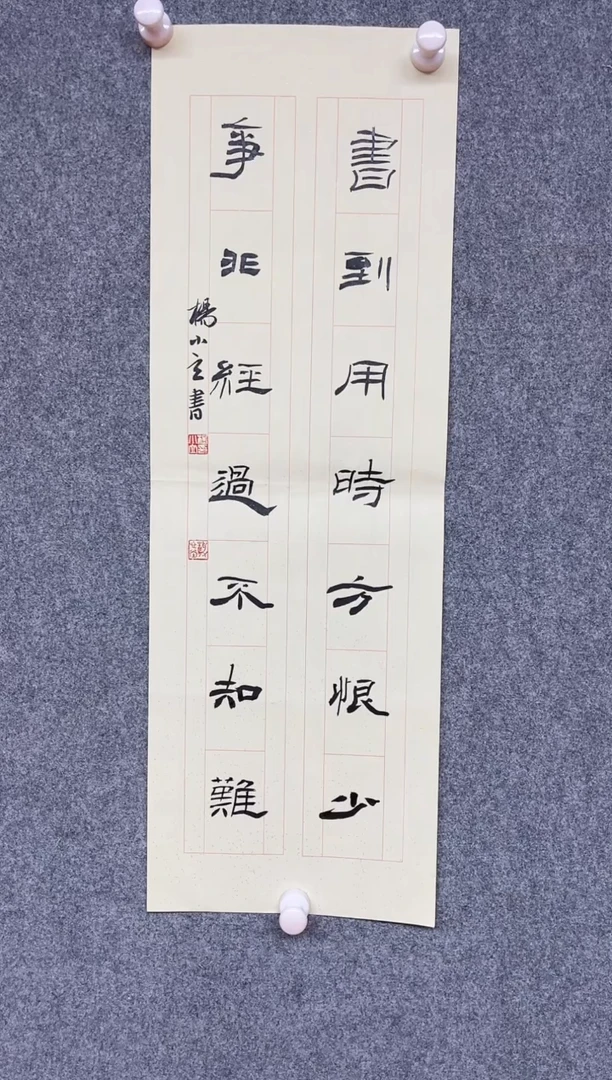 書到用時方恨少
事非經過不知難
楊小立書